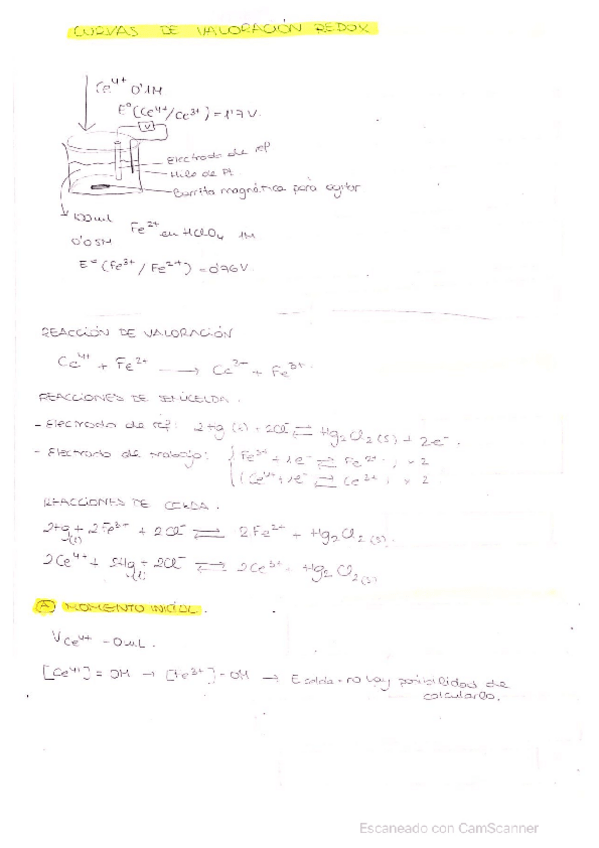 CURVAS DE VALORACIÓN REDOX
Ce⁴⁺ 0'1M
E⁰(Ce⁴⁺/Ce³⁺) = 1'7 V.
V
Electrodo de ref
Hilo de Pt
Barrita magnética para agitar
100 mL Fe²⁺ en HClO₄ 1M
0'05M
E⁰ (Fe³⁺ / Fe²⁺) = 0'76 V.
REACCIÓN DE VALORACIÓN
Ce⁴⁺ + Fe²⁺ → Ce³⁺ + Fe³⁺.
REACCIONES DE SEMICELDA.
- Electrodo de ref: 2Hg (l) + 2Cl⁻ ⇌ Hg₂Cl₂ (s) + 2e⁻.
- Electrodo de trabajo: { (Fe³⁺ + 1e⁻ ⇌ Fe²⁺) x 2
{ (Ce⁴⁺ + 1e⁻ ⇌ Ce³⁺) x 2
REACCIONES DE CELDA.
2Hg (l) + 2Fe³⁺ + 2Cl⁻ ⇌ 2Fe²⁺ + Hg₂Cl₂ (s).
2Ce⁴⁺ + 2Hg (l) + 2Cl⁻ ⇌ 2Ce³⁺ + Hg₂Cl₂ (s)
A MOMENTO INICIAL.
V Ce⁴⁺ = 0 mL.
[Ce⁴⁺] = 0M → [Fe³⁺] = 0M → E celda = no hay posibilidad de
calcularlo.
Escaneado con CamScanner